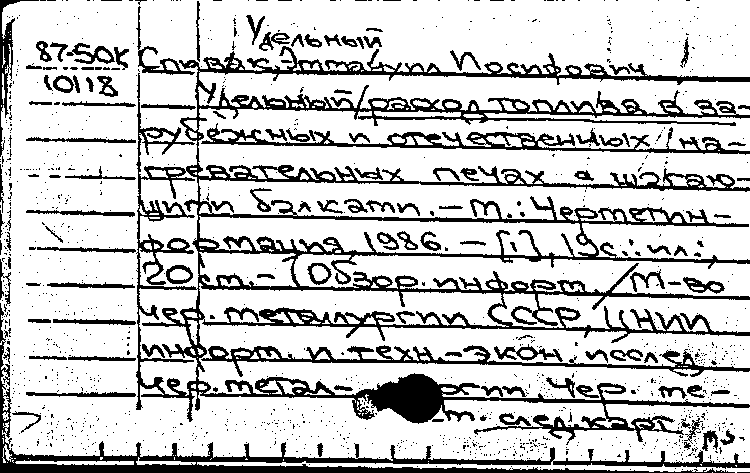 Удельный
87-50К Спивак, Эммануил Иосифович
10118
Удельный/расход топлива в за-
рубежных и отечественных / на-
гревательных печах с шагаю-
щими балками. – М.: Черметин-
формация, 1986. – [1], 19с.: ил.;
20 см. – (Обзор. информ. / М-во
чер. металлургии СССР, ЦНИИ
информ. и техн.-экон. исслед.
чер. метал- ргии. Чер. ме-
т. след. карт.